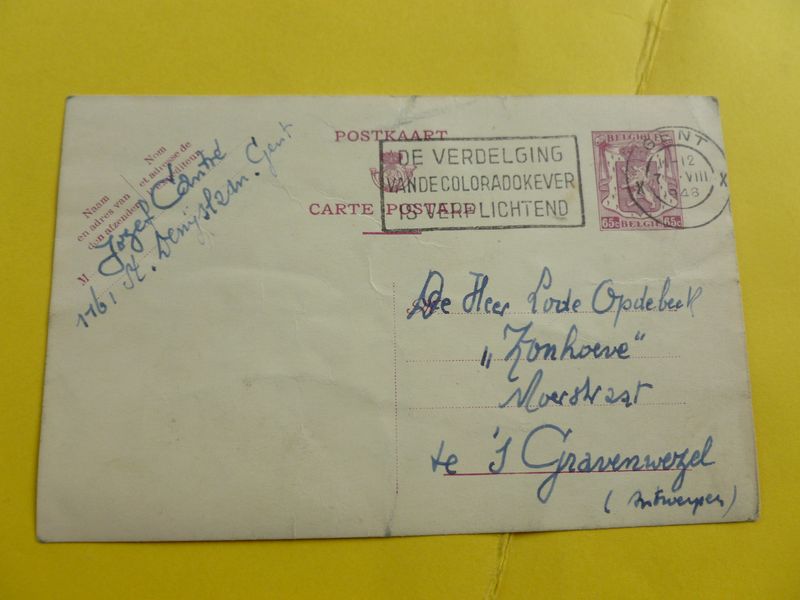 POSTKAART
CARTE POSTALE
DE VERDELGING
VAN DE COLORADOKEVER
IS VERPLICHTEND
BELGIQUE
65c BELGIE 65c
GENT
12
VIII
1948
X X
Naam
en adres van
den afzender
Nom
et adresse de
M Jozef Cantré
St. Denijslaan. Gent
De Heer Lode Opdebeek
„Zonhoeve"
Moerstraat
te 's Gravenwezel
(Antwerpen)